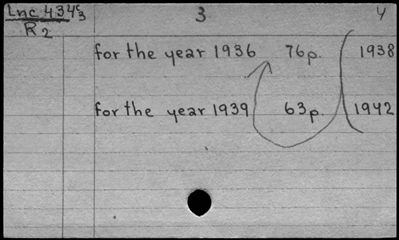 Lnc 434c3 3 4
R2
for the year 1936 76p. 1938
for the year 1939 63p. 1942